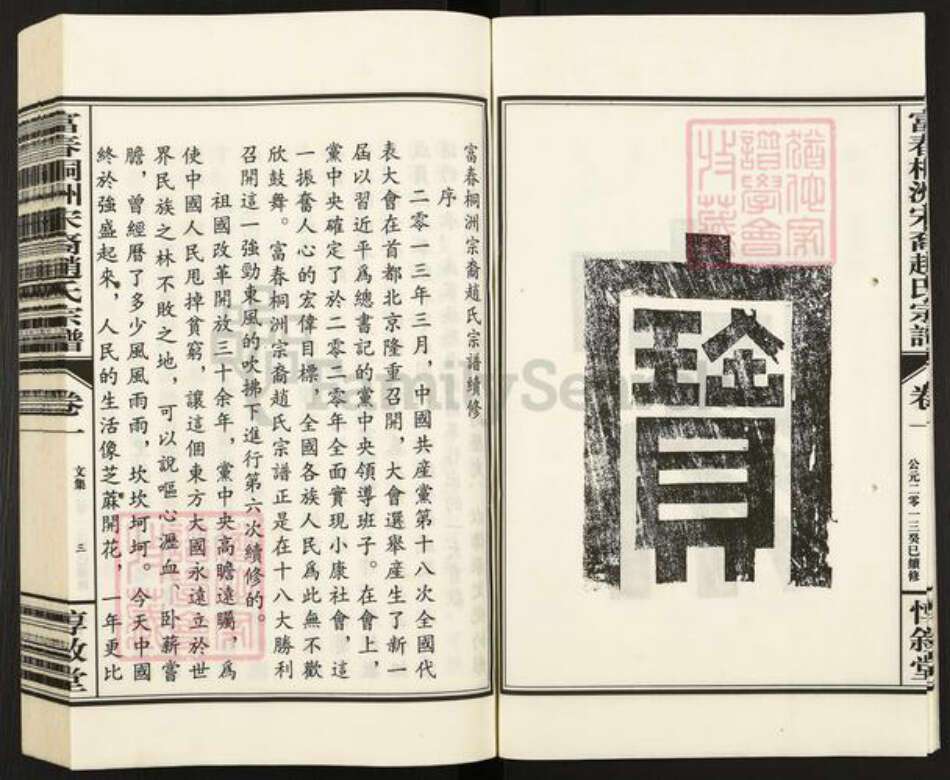 富春桐洲宋裔趙氏宗譜
卷一
公元二零一三癸巳續修
惇敘堂
寶
富春桐洲宗裔趙氏宗譜續修
序
二零一三年三月，中國共産黨第十八次全國代
表大會在首都北京隆重召開，大會選舉産生了新一
屆以習近平爲總書記的黨中央領導班子。在會上，
黨中央確定了於二零二零年全面實現小康社會，這
一振奮人心的宏偉目標。全國各族人民爲此無不歡
欣鼓舞。富春桐洲宗裔趙氏宗譜正是在十八大勝利
召開這一強勁東風的吹拂下進行第六次續修的。
祖國改革開放三十餘年，黨中央高瞻遠矚，爲
使中國人民甩掉貧窮，讓這個東方大國永遠立於世
界民族之林不敗之地，可以說嘔心瀝血、卧薪嘗
膽，曾經曆了多少風風雨雨，坎坎坷坷。今天中國
終於強盛起來，人民的生活像芝蔴開花，一年更比
富春桐洲宋裔趙氏宗譜
卷一
文集
三
惇敘堂
FamilySearch